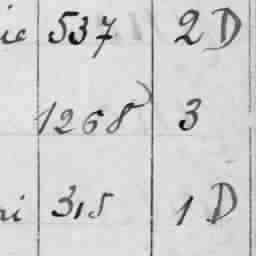 ie 537 2 D
1268 3
ni 315 1 D